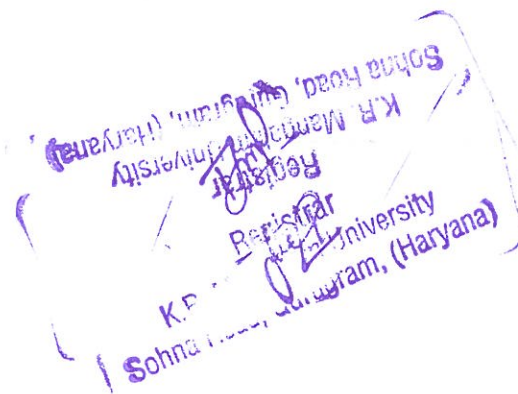 Registrar
K.R. Mangalam University
Sohna Road, Gurugram, (Haryana)
Registrar
University
Sohna Gurugram, (Haryana)